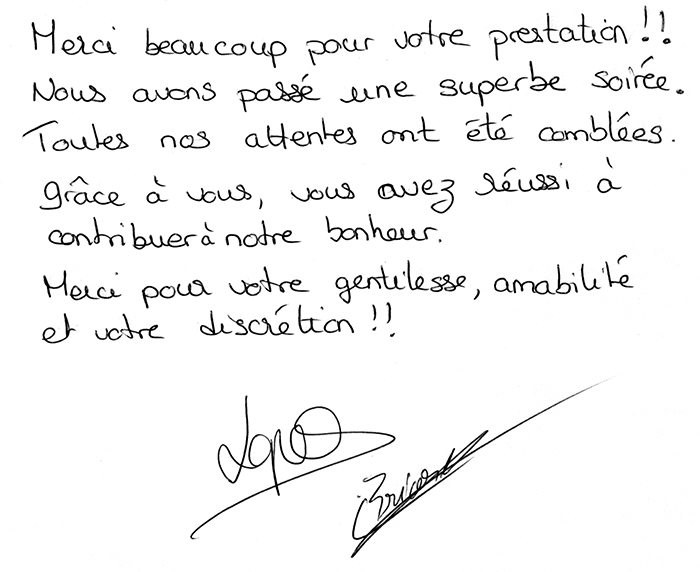 Merci beaucoup pour votre prestation !!
Nous avons passé une superbe soirée.
Toutes nos attentes ont été comblées.
Grâce à vous, vous avez réussi à
contribuer à notre bonheur.
Merci pour votre gentilesse, amabilité
et votre discrétion !!